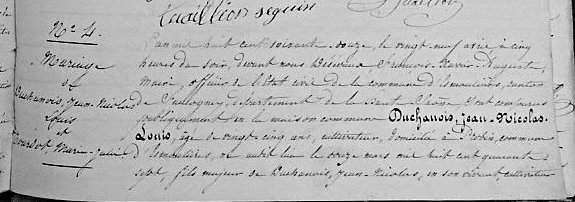 Nº 4.
Mariage
de
Duchanois, Jean-Nicolas
Louis
et
Marie-Julie
L'an mil huit cent soixante-douze, le vingt-neuf avril à cinq
heures du soir, devant nous Desvraux François-Xavier-Auguste,
Maire, officier de l'état civil de la commune d'Esmoulières, canton
de Faucogney, département de la Haute Saône, sont comparus
publiquement en la maison commune Duchanois, Jean-Nicolas-
Louis, âgé de vingt-cinq ans, cultivateur, domicilié à commune
d'Esmoulières, né audit lieu le douze mars mil huit cent quarante-
sept, fils majeur de Duchanois, Jean-Nicolas, en son vivant, cultivateur